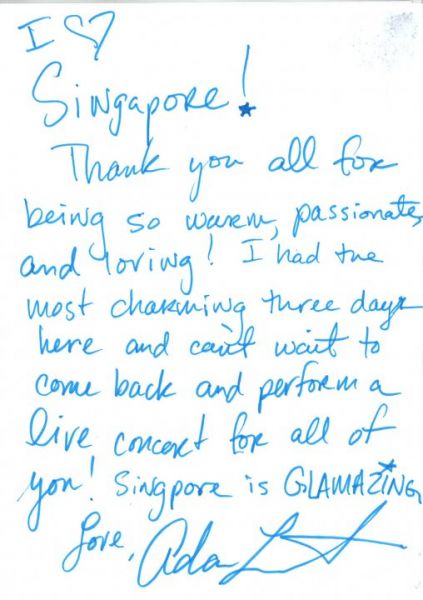 I ♡
Singapore!
Thank you all for
being so warm, passionate,
and loving! I had the
most charming three days
here and can't wait to
come back and perform a
live concert for all of
you! Singpore is GLAMAZING
Love, Adam L